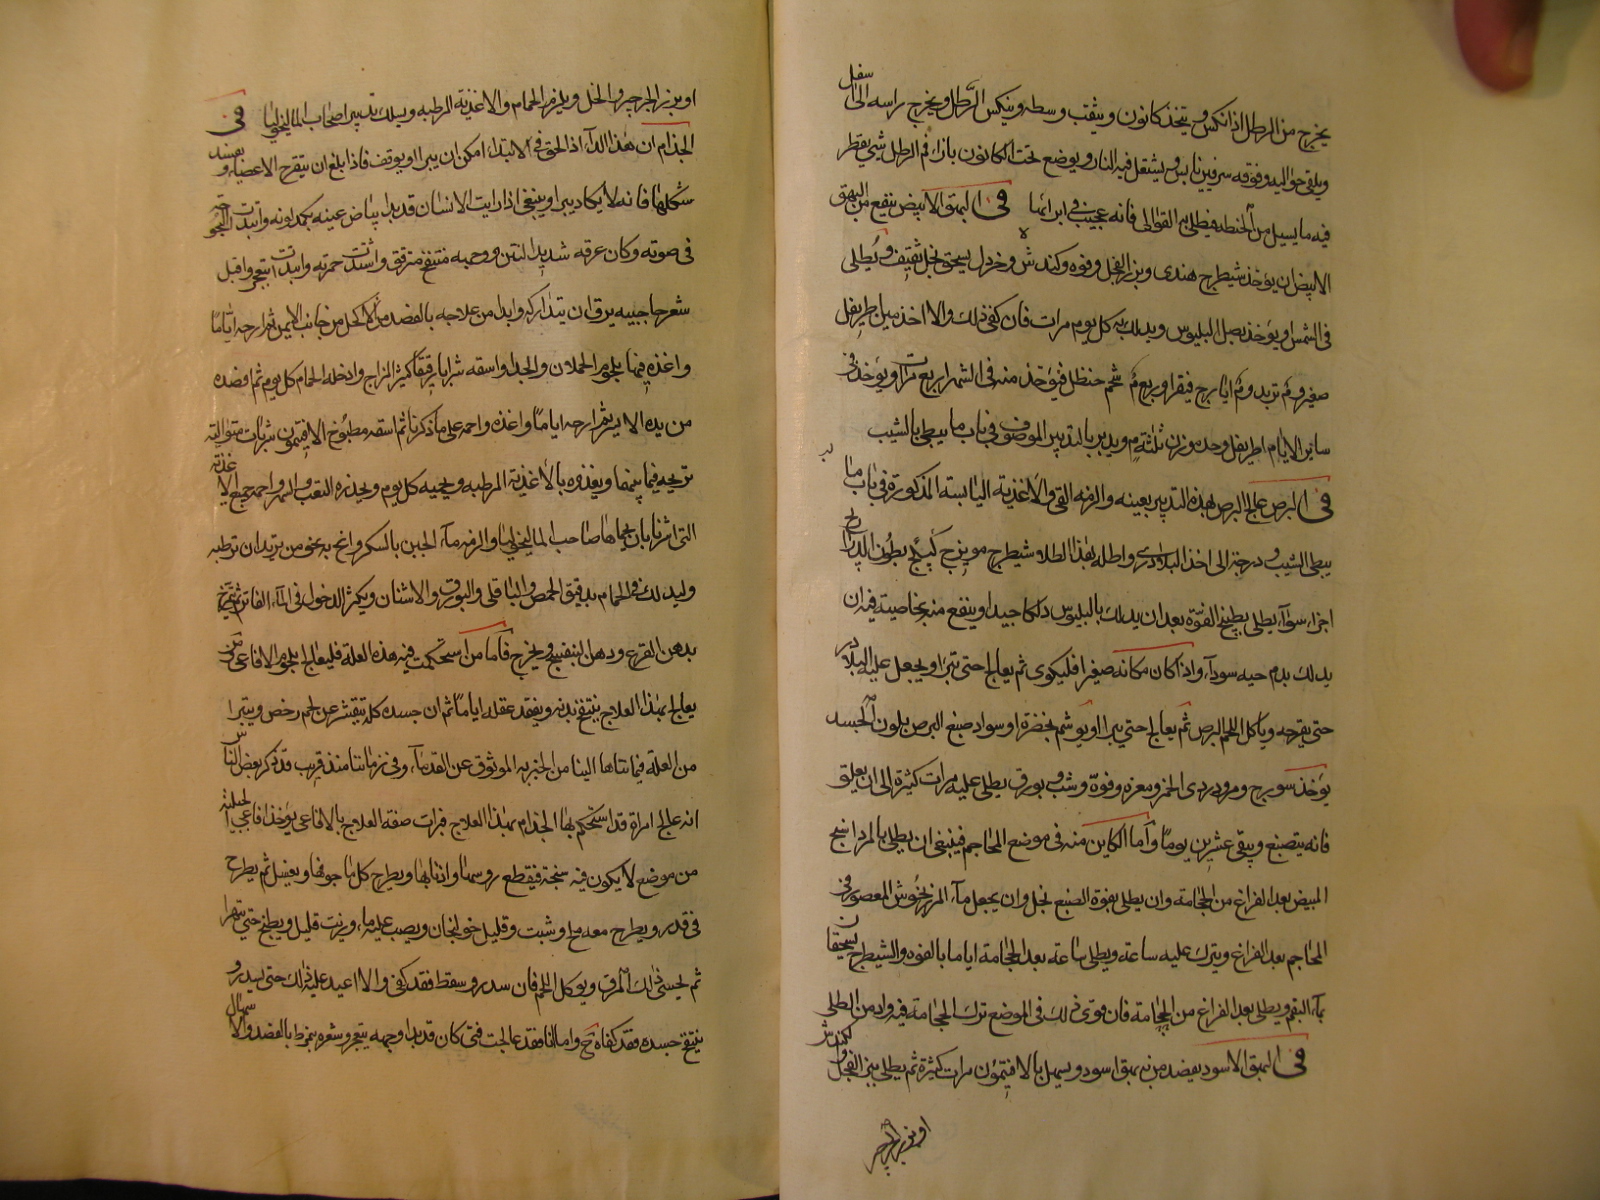 يخرج من الرطل اذا نكس ويتخذ كانون ويثقب وسطه وينكس الرطل ويخرج راسه الى اسفل
ويلقى حواليه وفوقه سرقين يابس ويشتعل فيه النار ويوضع تحت الكانون بازاء فم الرطل شي يقطر
فيه ما يسيل من الحنطة فيطلى به القوابى فانه عجيب في ابرائها في البهق الابيض ينفع من البهق
الابيض ان يؤخذ شيطرج هندى وبزر الفجل وفوه وكندش وخردل يسحق بخل ثقيف ويطلى
فى الشمس او يؤخذ بصل البلبوس ويدلك به كل يوم مرات فان كفى ذلك والا اخذ من اطريفل
صغير و تربد و ايارج فيقرا وربع شحم حنظل فيؤخذ منه فى الشهر اربع مرات ويؤخذ فى
ساير الايام اطريفل وحده وزن ثلثة ويدبر بالتدبير الموصوف فى باب ما يبطى بالشيب
فى البرص علاج البرص بهذه التدبير بعينه والزمه القى والاغذية اليابسة المذكورة فى باب ما
يبطى الشيب ودرجة الى اخذ البلادرى واطله بهذا الطلاء شيطرج مويزج كبيكج بطون الذراريح
اجزاء سواء يطلى بطبيخ الفوة بعد ان يدلك بالبلبوس دلكا جيدا وينفع منه بخاصية فيه ان
يدلك بدم حيه سوداء واذا كان مكانه صغيرا فليكوى ثم يعالج حتى تبرا او يجعل عليه البلادر
حتى يقرحه وياكل اللحم البرص ثم يعالج حتى يبرا او يوشم بخضرة او سواد صبغ البرص بلون الجسد
يؤخذ سورج ومرو دردى الخمر ومغره وفوة وشب وبورق يطلى عليه مرات كثيرة الى ان يعلق
فانه يتصبغ ويبقى عشرين يوما واما الكاين منه فى موضع المحاجم فينبغى ان يطلى بالمرداسنج
المبيض بعد الفراغ من الحجامة وان يطلى بفوة الصبغ بخل وان يجعل ماء المرزنجوش المعصور فى
المحاجم بعد الفراغ ويترك عليه ساعة ويطلى ساعة بعد الحجامة اياما بالفوه والشيطرج يسحقان
بماء البقم ويطلى بعد الفراغ من الحجامة فان قوى ذلك فى الموضع ترك الحجامة فيه وادمن الطلى
فى البهق الاسود يفصد من به بهق اسود ويسهل بالافتيمون مرات كثيرة ثم يطلى ببزر الفجل والكندش
او بزر الجرجير
او بزر الجرجير والخل ويلزم الحمام والاغذية الرطبه ويسلك تدبير اصحاب الماليخوليا فى
الجذام ان هذا الداء اذا لحق فى الابتداء امكن ان يبرا او يوقف فاذا بلغ ان يتقرح الاعضاء ويفسد
شكلها فانه لا يكاد يبرا وينبغى اذا رايت الانسان قد بدا بياض عينه بكمد لونه وابتدت
فى صوته وكان عرقه شديد النتن ووجهه منتفخ مترقق واشتدت حمرته وابتدات يتعجر واقبل
شعر حاجبيه يرق ان يتداركه وابدا من علاجه بالفصد من الاكحل من جانب الايمن ثم ارحه اياما
واغذه فيها بلحوم الحملان والجدا واسقه شرابا رقيقا كثير المزاج وادخله الحمام كل يوم ثم افصده
من يده الايسر ثم ارحه اياما واغذه واحمه على ما ذكرنا ثم اسقه مطبوخ الافتيمون شربات متوالية
تريحه فيما بينها ويغذوه بالاغذية المرطبه ويحميه كل يوم ويحذره التعب والسهر واحمه جميع الاغذية
التى اشرنا بان يحماها صاحب الماليخوليا والزمه ماء الجبن بالسكر وانح به نحو من يريدان ترطبه
وليدلك فى الحمام بدقيق الحمص والباقلى والبورق والاشنان ويكثر الدخول فى الماء الفاتر ثم يتمرخ
بدهن القرع ودهن البنفسج ويخرج فاما من استحكمت فيه هذه العلة فليعالج بلحوم الافاعى
يعالج بهذا العلاج ينتفخ بدنه ويفقد عقله اياما ثم ان جسده كله يتقشر عن لحم رخص ويبرا
من العلة فيما تناها الينا من الخبر به الموثوق عن القدماء وفى زماننا منذ قريب قد ذكر بعض الناس
انه عالج امراة قد استحكم بها الجذام بهذا العلاج فبرات صفة العلاج بالافاعى يؤخذ افاعى جبلية
من موضع لا يكون فيه سبخة فيقطع روسها واذنابها ويطرح كل ما جوفها ويغسل ثم يطرح
فى قدر ويطرح معه ملح وشبت وقليل خولنجان ويصب عليه ماء وزيت قليل ويطبخ حتى يتهرا
ثم يحسى ذلك المرق ويوكل اللحم فان سدر وسقط فقد كفى والا اعيد عليه ذلك حتى يسدر و
ينتفخ جسده فقد كفاه واما انا فقد عالجت فتى كان قد بدا وجهه يتعجر وشعره يتمرط بالفصد والاسهال